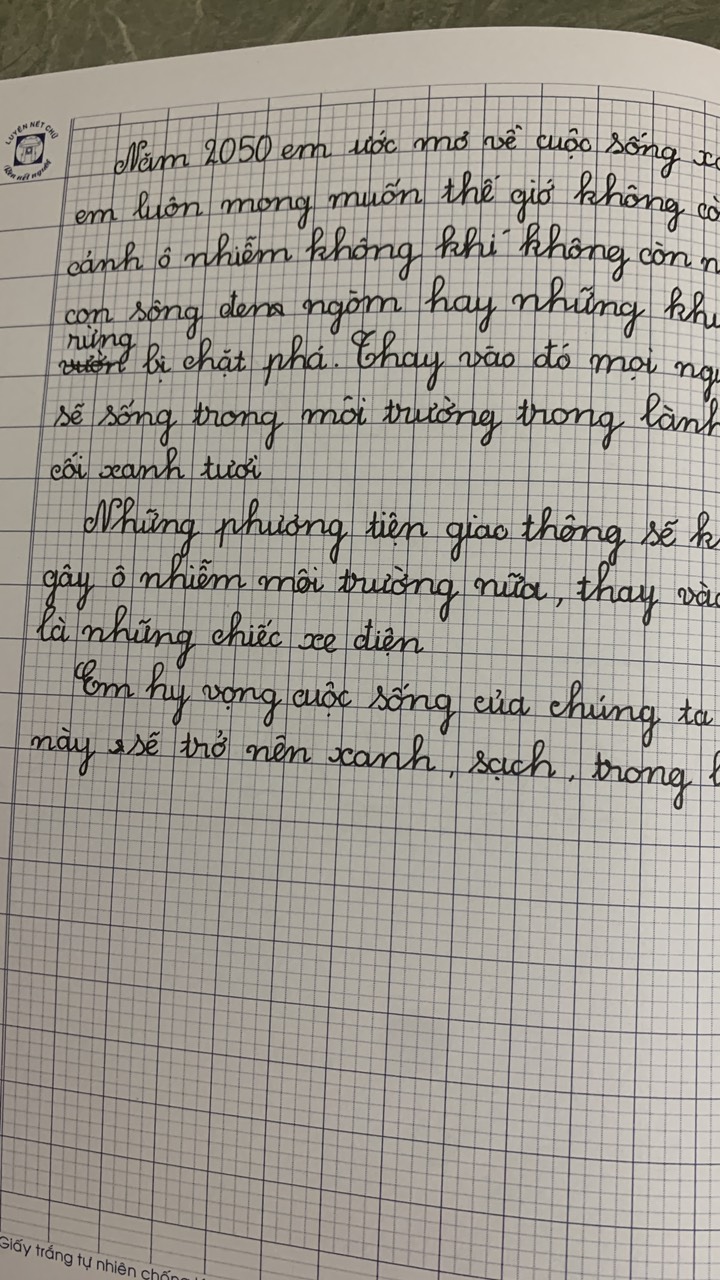 LUYỆN NÉT CHỮ
Rèn nết người
Năm 2050 em ước mơ về cuộc sống
em luôn mong muốn thế giớ không
cảnh ô nhiễm không khí không còn
con sông đen ngòm hay những
rừng
bị chặt phá. Thay vào đó mọi
sẽ sống trong môi trường trong lành
cối xanh tươi
Những phương tiện giao thông sẽ
gây ô nhiễm môi trường nữa, thay
là những chiếc xe điện
Em hy vọng cuộc sống của chúng ta
này sẽ trở nên xanh, sạch, trong
Giấy trắng tự nhiên chống